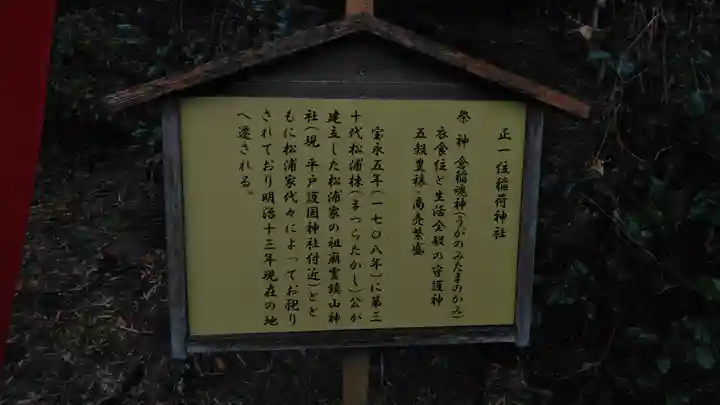 正一位稲荷神社
祭神 倉稲魂神(うがのみたまのかみ)
衣食住と生活全般の守護神
五穀豊穣・商売繁盛
宝永五年(一七〇八年)に第三
十代松浦棟(まつらたかし)公が
建立した松浦家の祖廟霊鏡山神
社(現 平戸護国神社付近)とと
もに松浦家代々によってお祀り
されており明治十三年現在の地
へ遷される。